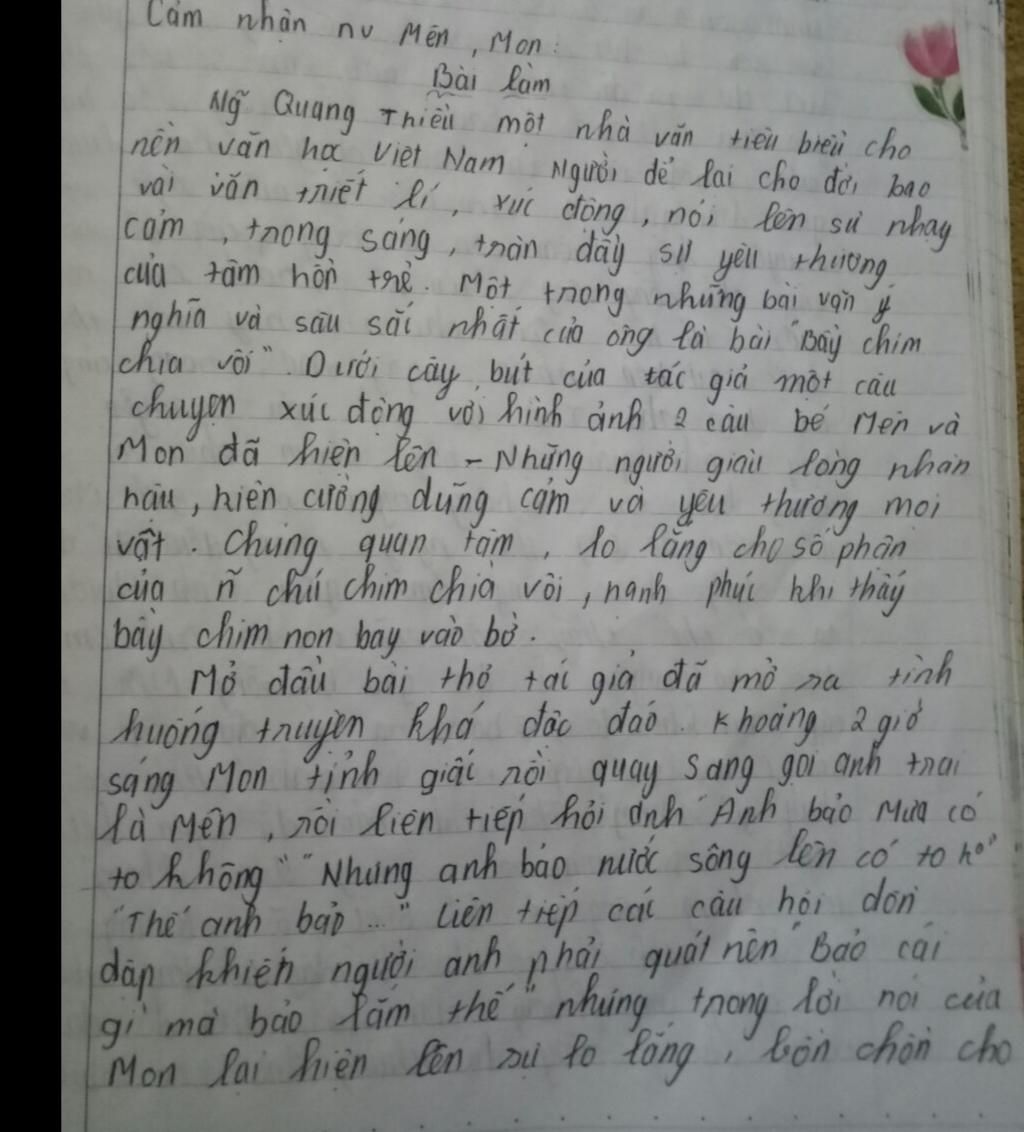 Cảm nhận nv Mên, Mon:
Bài làm
Ng~ Quang Thiều một nhà văn tiêu biểu cho
nền văn học Việt Nam. Người để lại cho đời bao
vài văn triết lí, xúc động, nói lên sự nhạy
cảm, trong sáng, tràn đầy sự yêu thương
của tâm hồn trẻ. Một trong những bài văn ý
nghĩa và sâu sắc nhất của ông là bài "Bầy chim
chìa vôi". Dưới cây bút của tác giả một câu
chuyện xúc động với hình ảnh 2 cậu bé Mên và
Mon đã hiện lên - Những người giàu lòng nhân
hậu, kiên cường dũng cảm và yêu thương mọi
vật. Chúng quan tâm, lo lắng cho số phận
của ñ chú chim chìa vôi, hạnh phúc khi thấy
bầy chim non bay vào bờ.
Mở đầu bài thơ tác giả đã mở ra tình
huống truyện khá độc đáo. Khoảng 2 giờ
sáng Mon tỉnh giấc rồi quay sang gọi anh trai
là Mên, rồi liên tiếp hỏi anh "Anh bảo mưa có
to không" "Nhưng anh bảo nước sông lên có to ko"
"Thế anh bảo ..." Liên tiếp các câu hỏi dồn
dập khiến người anh phải quát nên "Bảo cái
gì mà bảo lắm thế" nhưng trong lời nói của
Mon lại hiện lên sự lo lắng, bồn chồn cho